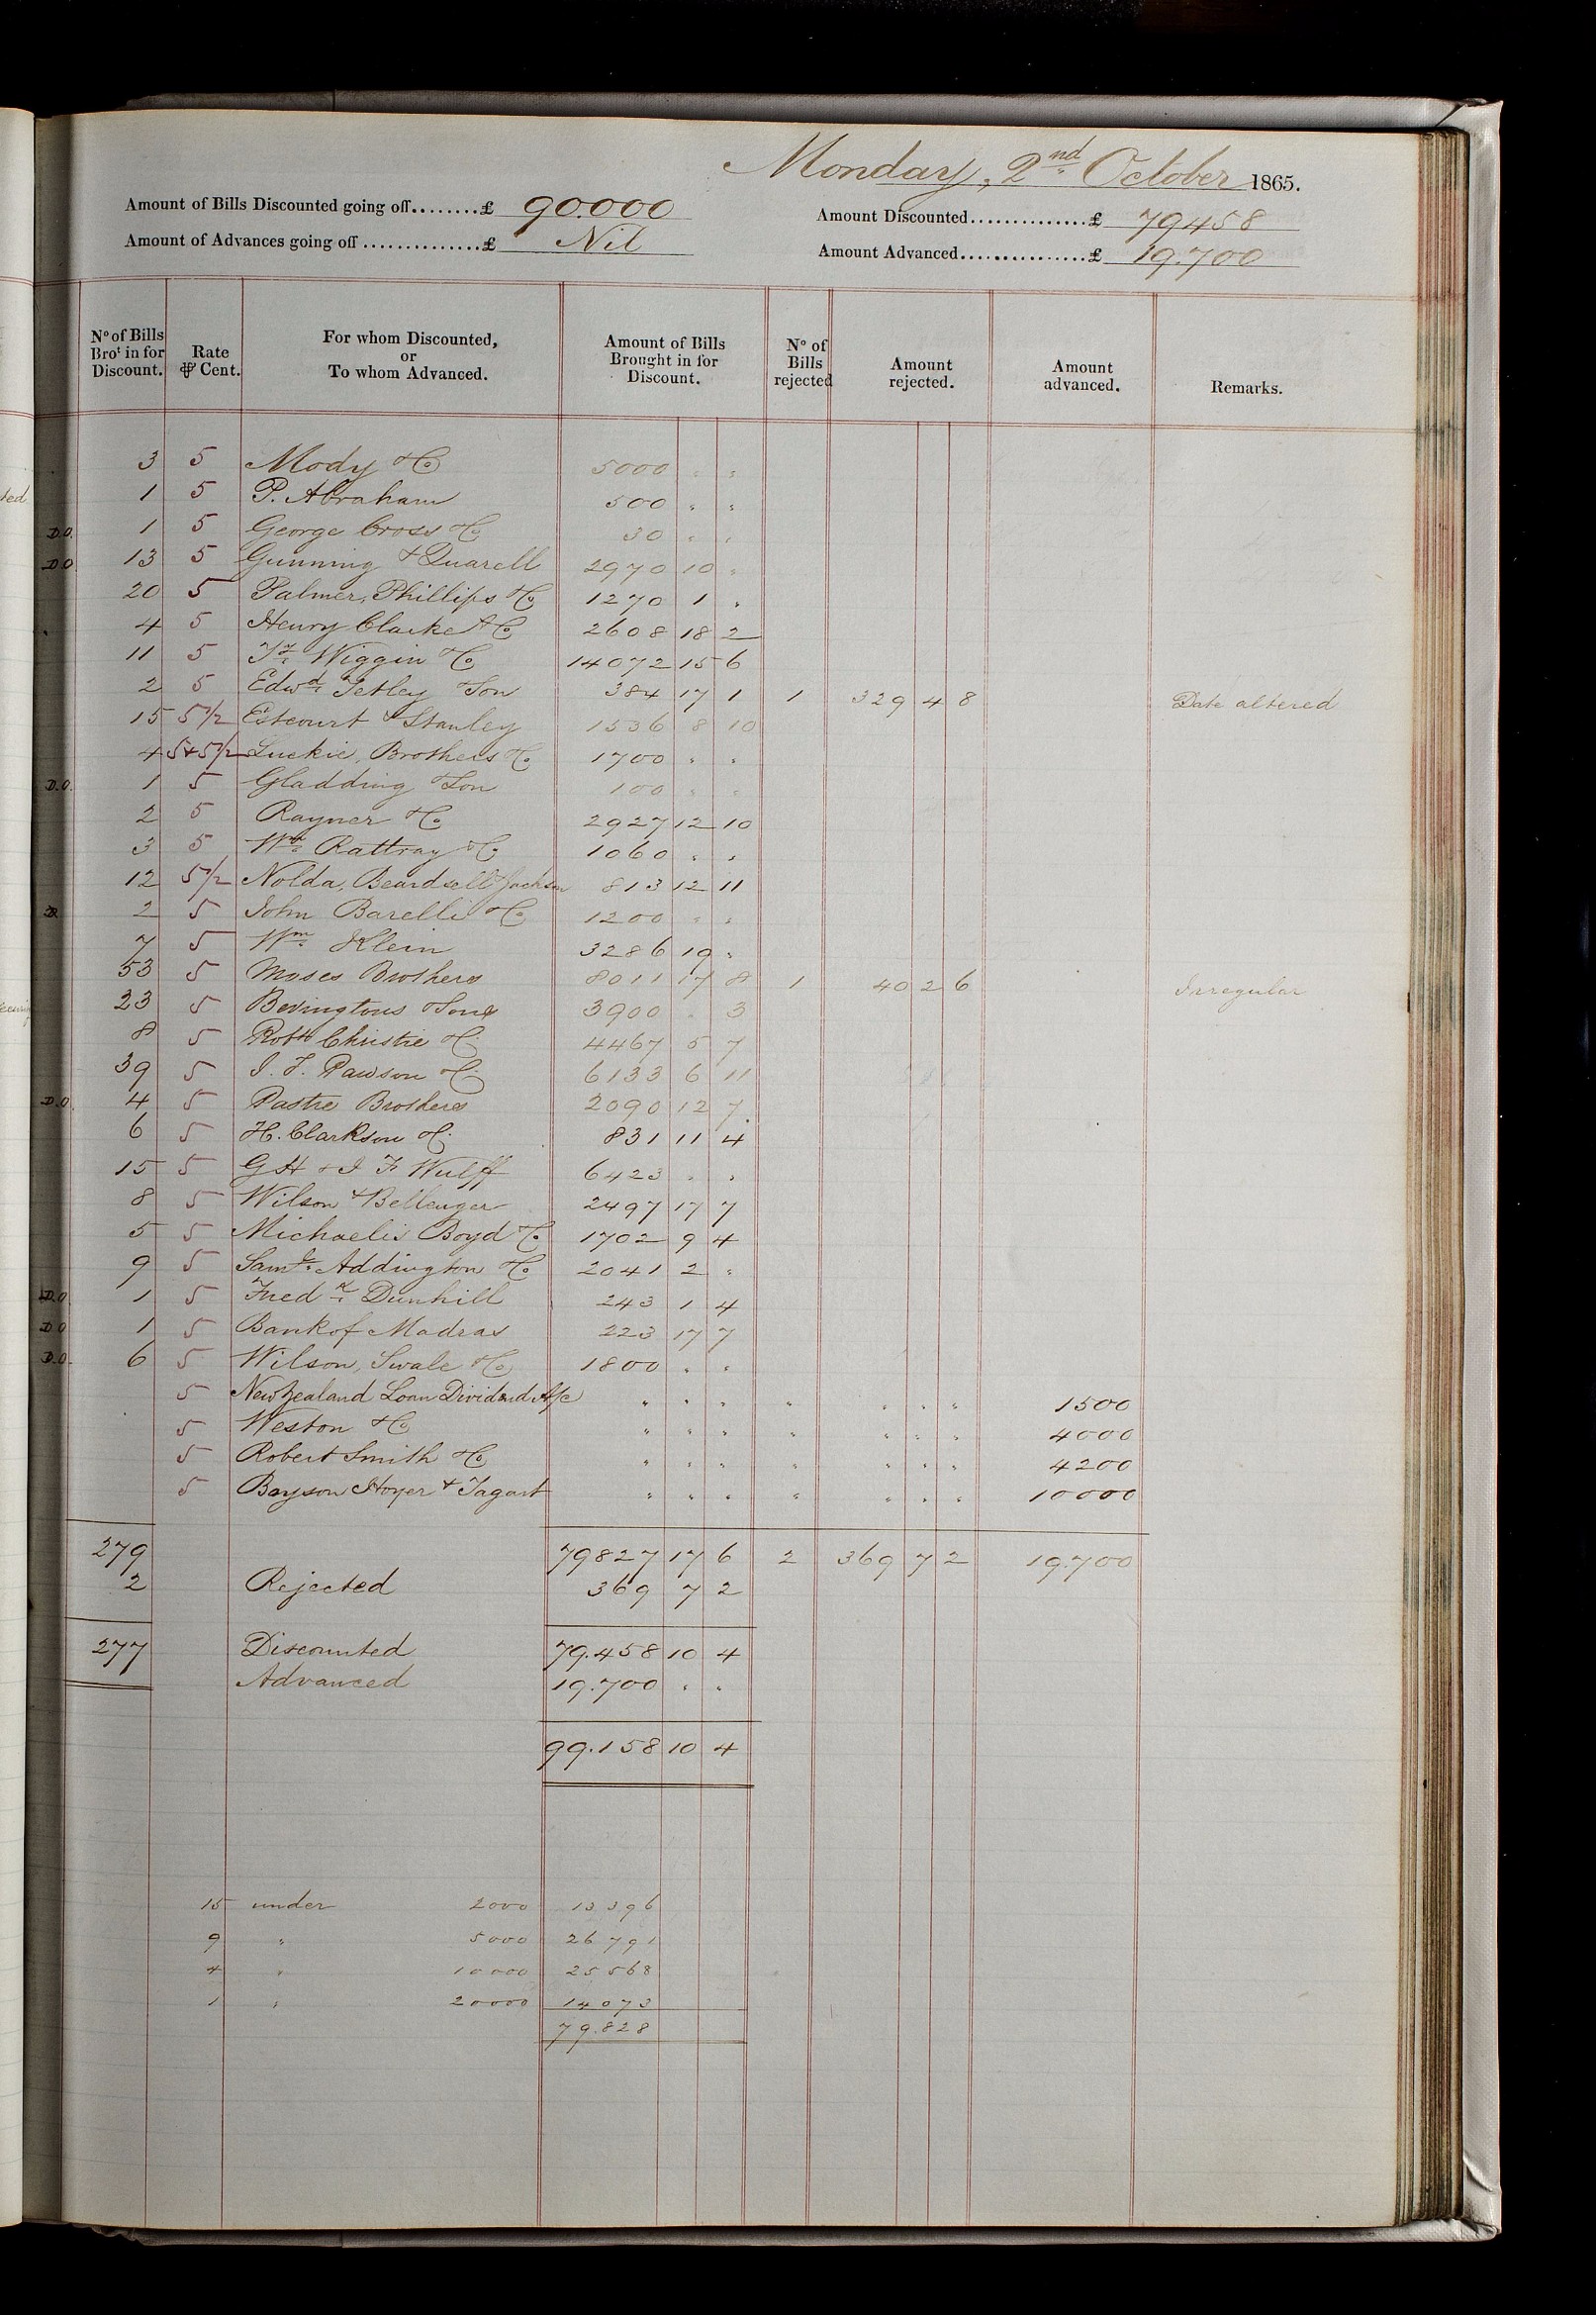 Monday, 2nd October 1865.
Amount of Bills Discounted going off........£ 90.000
Amount Discounted..............£ 79458
Amount of Advances going off..............£ Nil
Amount Advanced...............£ 19.700
No of Bills Brot in for Discount. Rate ⅌ Cent. For whom Discounted, or To whom Advanced. Amount of Bills Brought in for Discount. No of Bills rejected Amount rejected. Amount advanced. Remarks.
3 5 Mody & Co 5000 " "
ted 1 5 P. Abraham 500 " "
D.O. 1 5 George Cross & Co 30 " "
D O 13 5 Gunning & Quarell 2970 10 "
20 5 Palmer, Phillips & Co 1270 1 "
4 5 Henry Clarke & Co 2608 18 2
11 5 Wiggin & Co 14072 15 6
2 5 Edwd. Tetley & Son 384 17 1 1 329 4 8 Date altered
15 5½ Estcourt & Stanley 1536 8 10
4 5+5½ Luckie, Brothers & Co 1700 " "
D.O. 1 5 Gladding & Son 100 " "
2 5 Rayner & Co 2927 12 10
3 5 Wm. Rattray & Co 1060 " "
12 5½ Nolda, Beardsell & Jackson 813 12 11
2 5 John Barelli & Co 1200 " "
7 5 Wm. Klein 3286 19 "
53 5 Moses Brothers 8011 17 8 1 40 2 6 Irregular
23 5 Bevingtons & Sons 3900 " 3
8 5 Robt Christie & Co 4467 5 7
39 5 J. F. Pawson & Co 6133 6 11
D.O 4 5 Pastre Brothers 2090 12 7
6 5 H. Clarkson & Co. 831 11 4
15 5 G H & J F Wulff 6423 " "
8 5 Wilson & Bellenger 2497 17 7
5 5 Michaelis Boyd & Co 1702 9 4
9 5 Saml. Addington & Co 2041 2 "
D.O 1 5 Fredk. Dunhill 243 1 4
D O 1 5 Bank of Madras 223 17 7
D.O. 6 5 Wilson, Swale & Co 1800 " "
5 New Zealand Loan Dividend A/c " " " " " " " 1500
5 Weston & Co " " " " " " " 4000
5 Robert Smith & Co " " " " " " " 4200
5 Bayson Hoyer & Tagart " " " " " " " 10000
279 79827 17 6 2 369 7 2 19.700
2 Rejected 369 7 2
277 Discounted 79.458 10 4
Advanced 19.700 " "
99.158 10 4
15 under 2000 13396
9 " 5000 26791
4 " 10000 25568
1 " 20000 14073
79.828